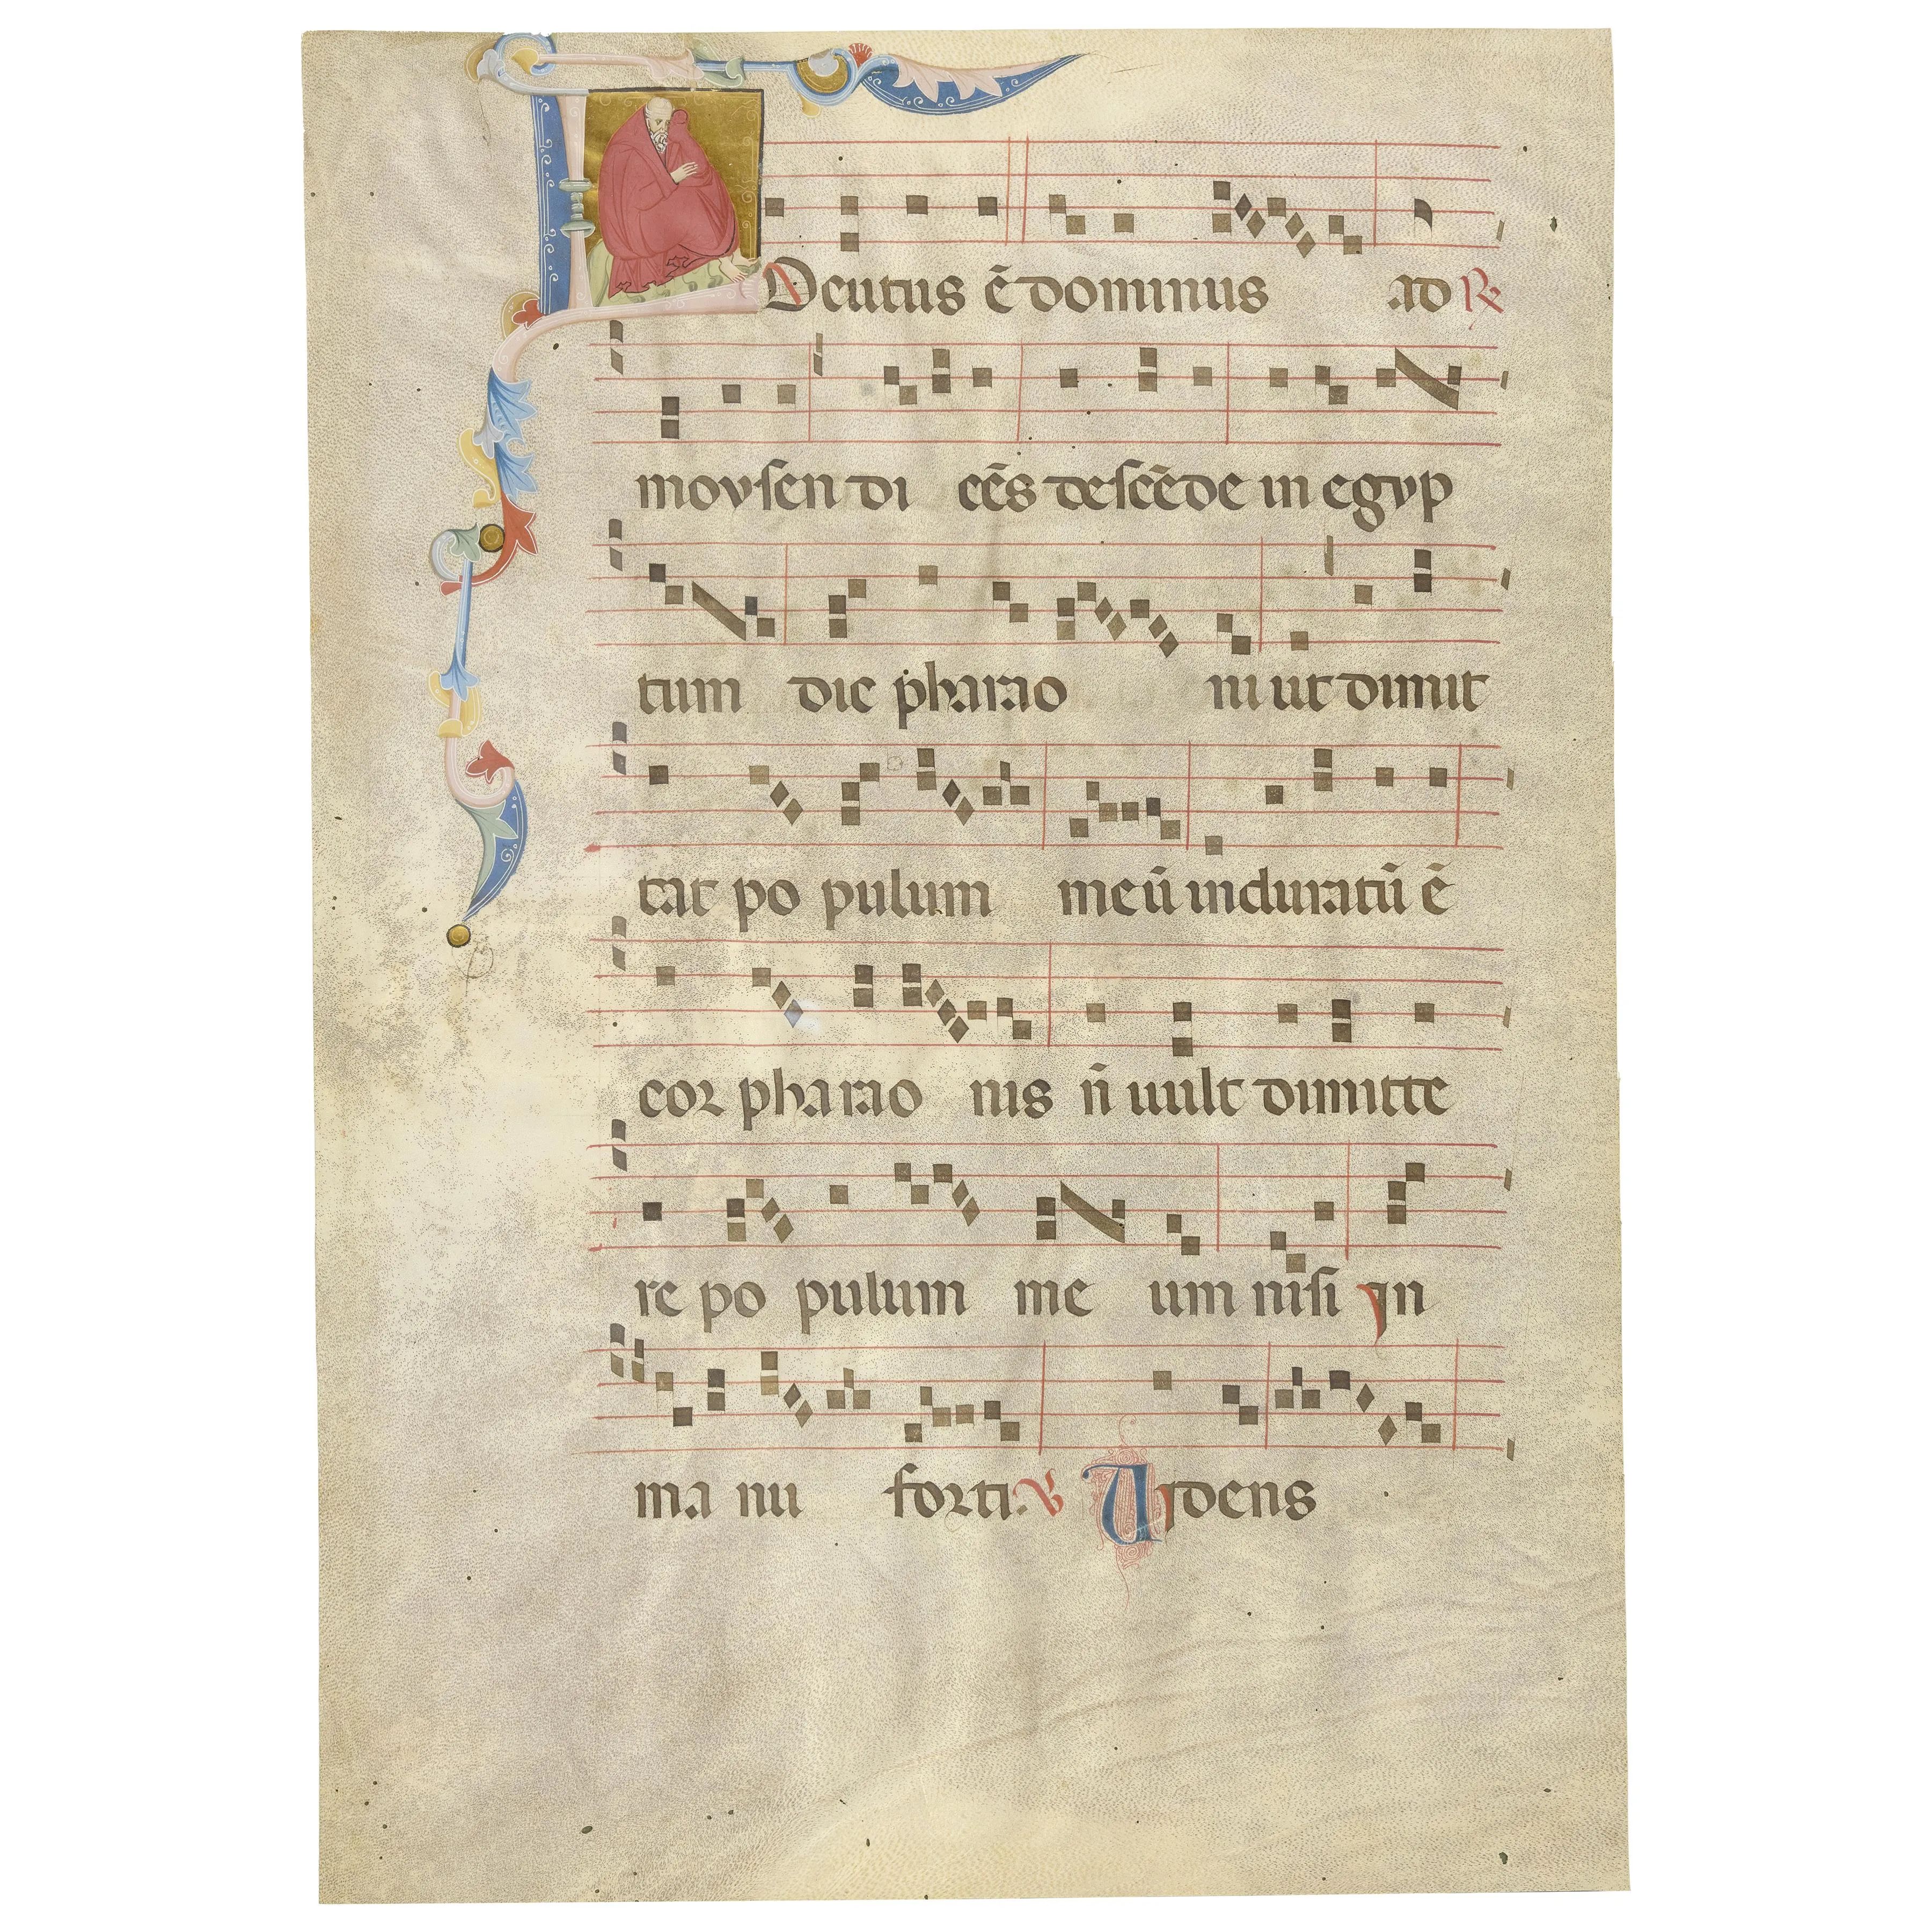 LOcutus ē dominus ad ℟
moysen di cēs descēde in egyp
tum dic pharao ni ut dimit
tat po pulum meū induratū ē
cor pharao nis n̄ uult dimitte
re po pulum me um nisi In
ma nu forti. ℣ Ardens